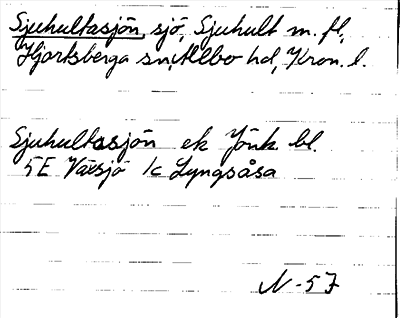 Sjuhultasjön, sjö, Sjuhult m. fl,
Hjortsberga sn, Allbo hd, Kron. l.
Sjuhultasjön ek Jönk bl.
5E Växjö 1c Lyngsåsa
N-57